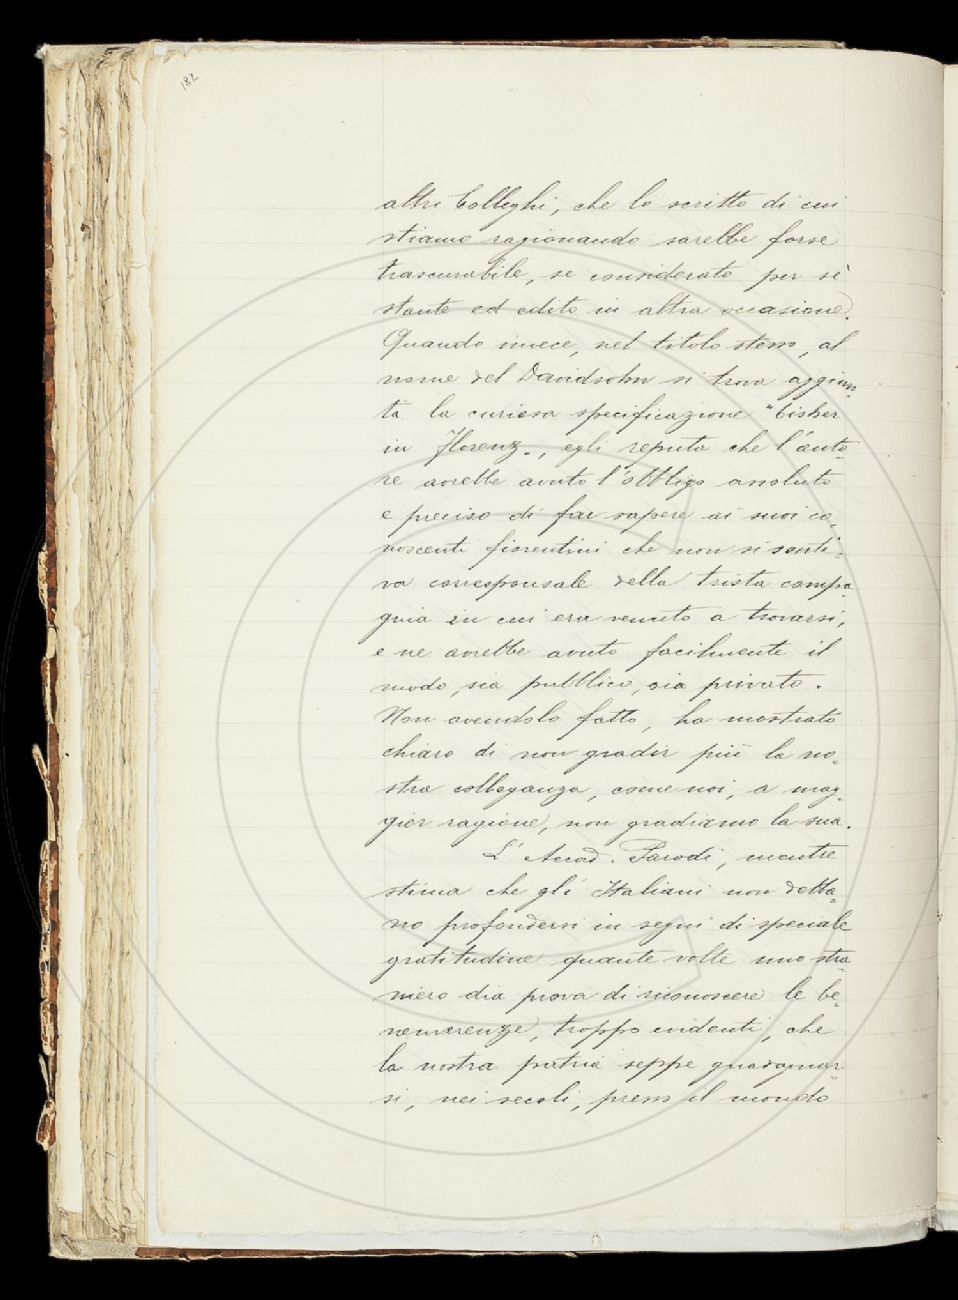 182
altri Colleghi, che lo scritto di cui
stiamo ragionando sarebbe forse
trascurabile, se considerato per sè
stante ed edito in altra occasione.
Quando invece, nel titolo stesso, al
nome del Davidsohn si trova aggiun-
ta la curiosa specificazione "bisher
in Florenz", egli reputa che l'auto-
re avrebbe avuto l'obbligo assoluto
e preciso di far sapere ai suoi co-
noscenti fiorentini che non si senti-
va corresponsale della trista compa-
gnia in cui era venuto a trovarsi,
e ne avrebbe avuto facilmente il
modo, sia pubblico, sia privato.
Non avendolo fatto, ha mostrato
chiaro di non gradir più la no-
stra colleganza, come noi, a mag-
gior ragione, non gradiamo la sua.
L'Accad. Parodi, mentre
stima che gli Italiani non debba-
no profondersi in segni di speciale
gratitudine quante volte uno stra-
niero dia prova di riconoscere le be-
nemerenze, troppo evidenti, che
la nostra patria seppe guadagnar-
si, nei secoli, presso il mondo